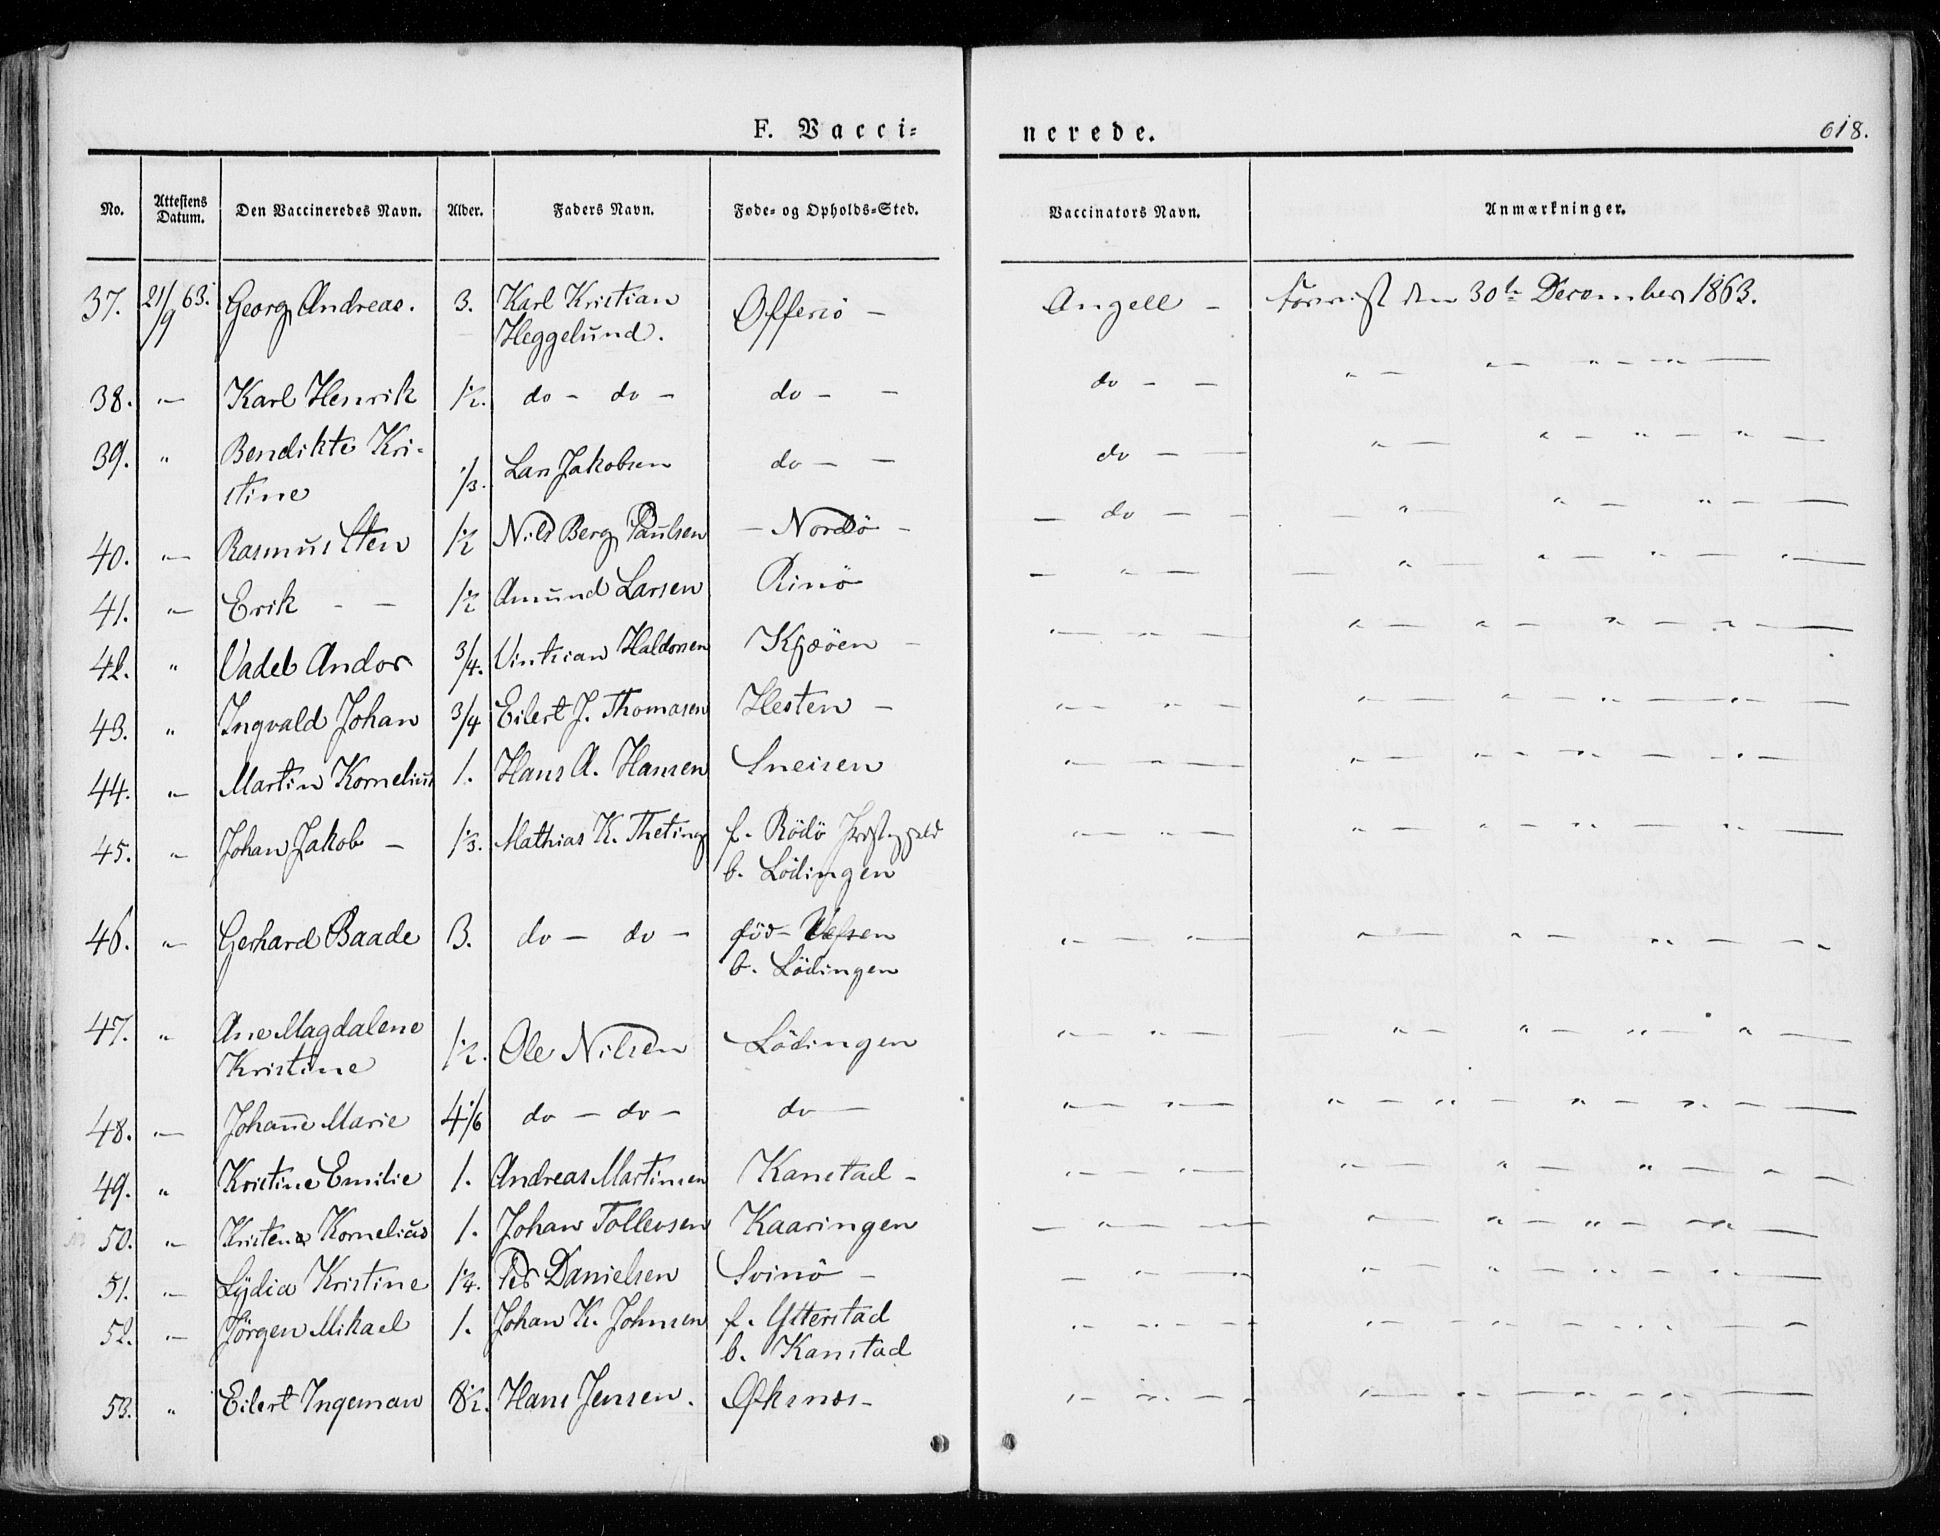 F. Vacci= nerede. 618.
No. Attestens Datum. Den Vaccineredes Navn. Alder. Faders Navn. Føde= og Opholds=Sted. Vaccinators Navn. Anmærkninger.
37. 21/9 63. Georg Andreas. 3. Karl Kristian Offersö – Angell – Forevist den 30te December 1863.
Heggelund.
38. " – Karl Henrik 1/2. do – do – do – – do – – " – " – " – " –
39. " Bendikte Kri- 1/3. Lars Jakobsen do – – do – – " – " – " – " –
stine
40. " – Rasmus Sten 1/2 Nils Berg Paulsen – Nordö – – do – – – " – " – " –
41. " – Erik – – 1/2 Amund Larsen Rinö – " – – – " – " – " – " –
42. " Andor 3/4. Haldorsen Kjæöen – " – " – " – " – " – " –
43. " Ingvald Johan 3/4 Eilert J. Thomasen Hesten – " – " – " – " – " – " –
44. " – Martin Kornelius 1. Hans A. Hansen Sneisen " – " – " – " – " – " –
45. " Johan Jakob – 1/3. Mathias K. Theting f. Rödö Præstegjeld " – " – " – " – " – " –
b. Lödingen
46. " – Gerhard Baade 3. do – do – föd – Vefsen " – " – " – " – " – "
b. Lödingen
47. " Ane Magdalene 1/2. Ole Nilsen Lödingen " – " – – " – " – " – " –
Kristine
48. " – Johanne Marie 4 1/6 do – do – do – " – " – " – " – " – " –
49. " Kristine Emilie 1. Andreas Martinsen Kanstad – " – " – " – " – " – " –
50. " – Kornelius 1. Johan Tollevsen Kaaringen – " – " – " – " – " – " –
51. " – Lydia Kristine 1/4. Per Danielsen Svinö – – " – " – " – " – " – " –
52. " – Jörgen Mikael 1. Johan K. Johnsen f. Ytterstad " – " – " – " – " – " –
b. Kanstad
53. " Eilert Ingeman 8 1/2. Hans Jensen. Öksnes – " – " – " – " – " – " –